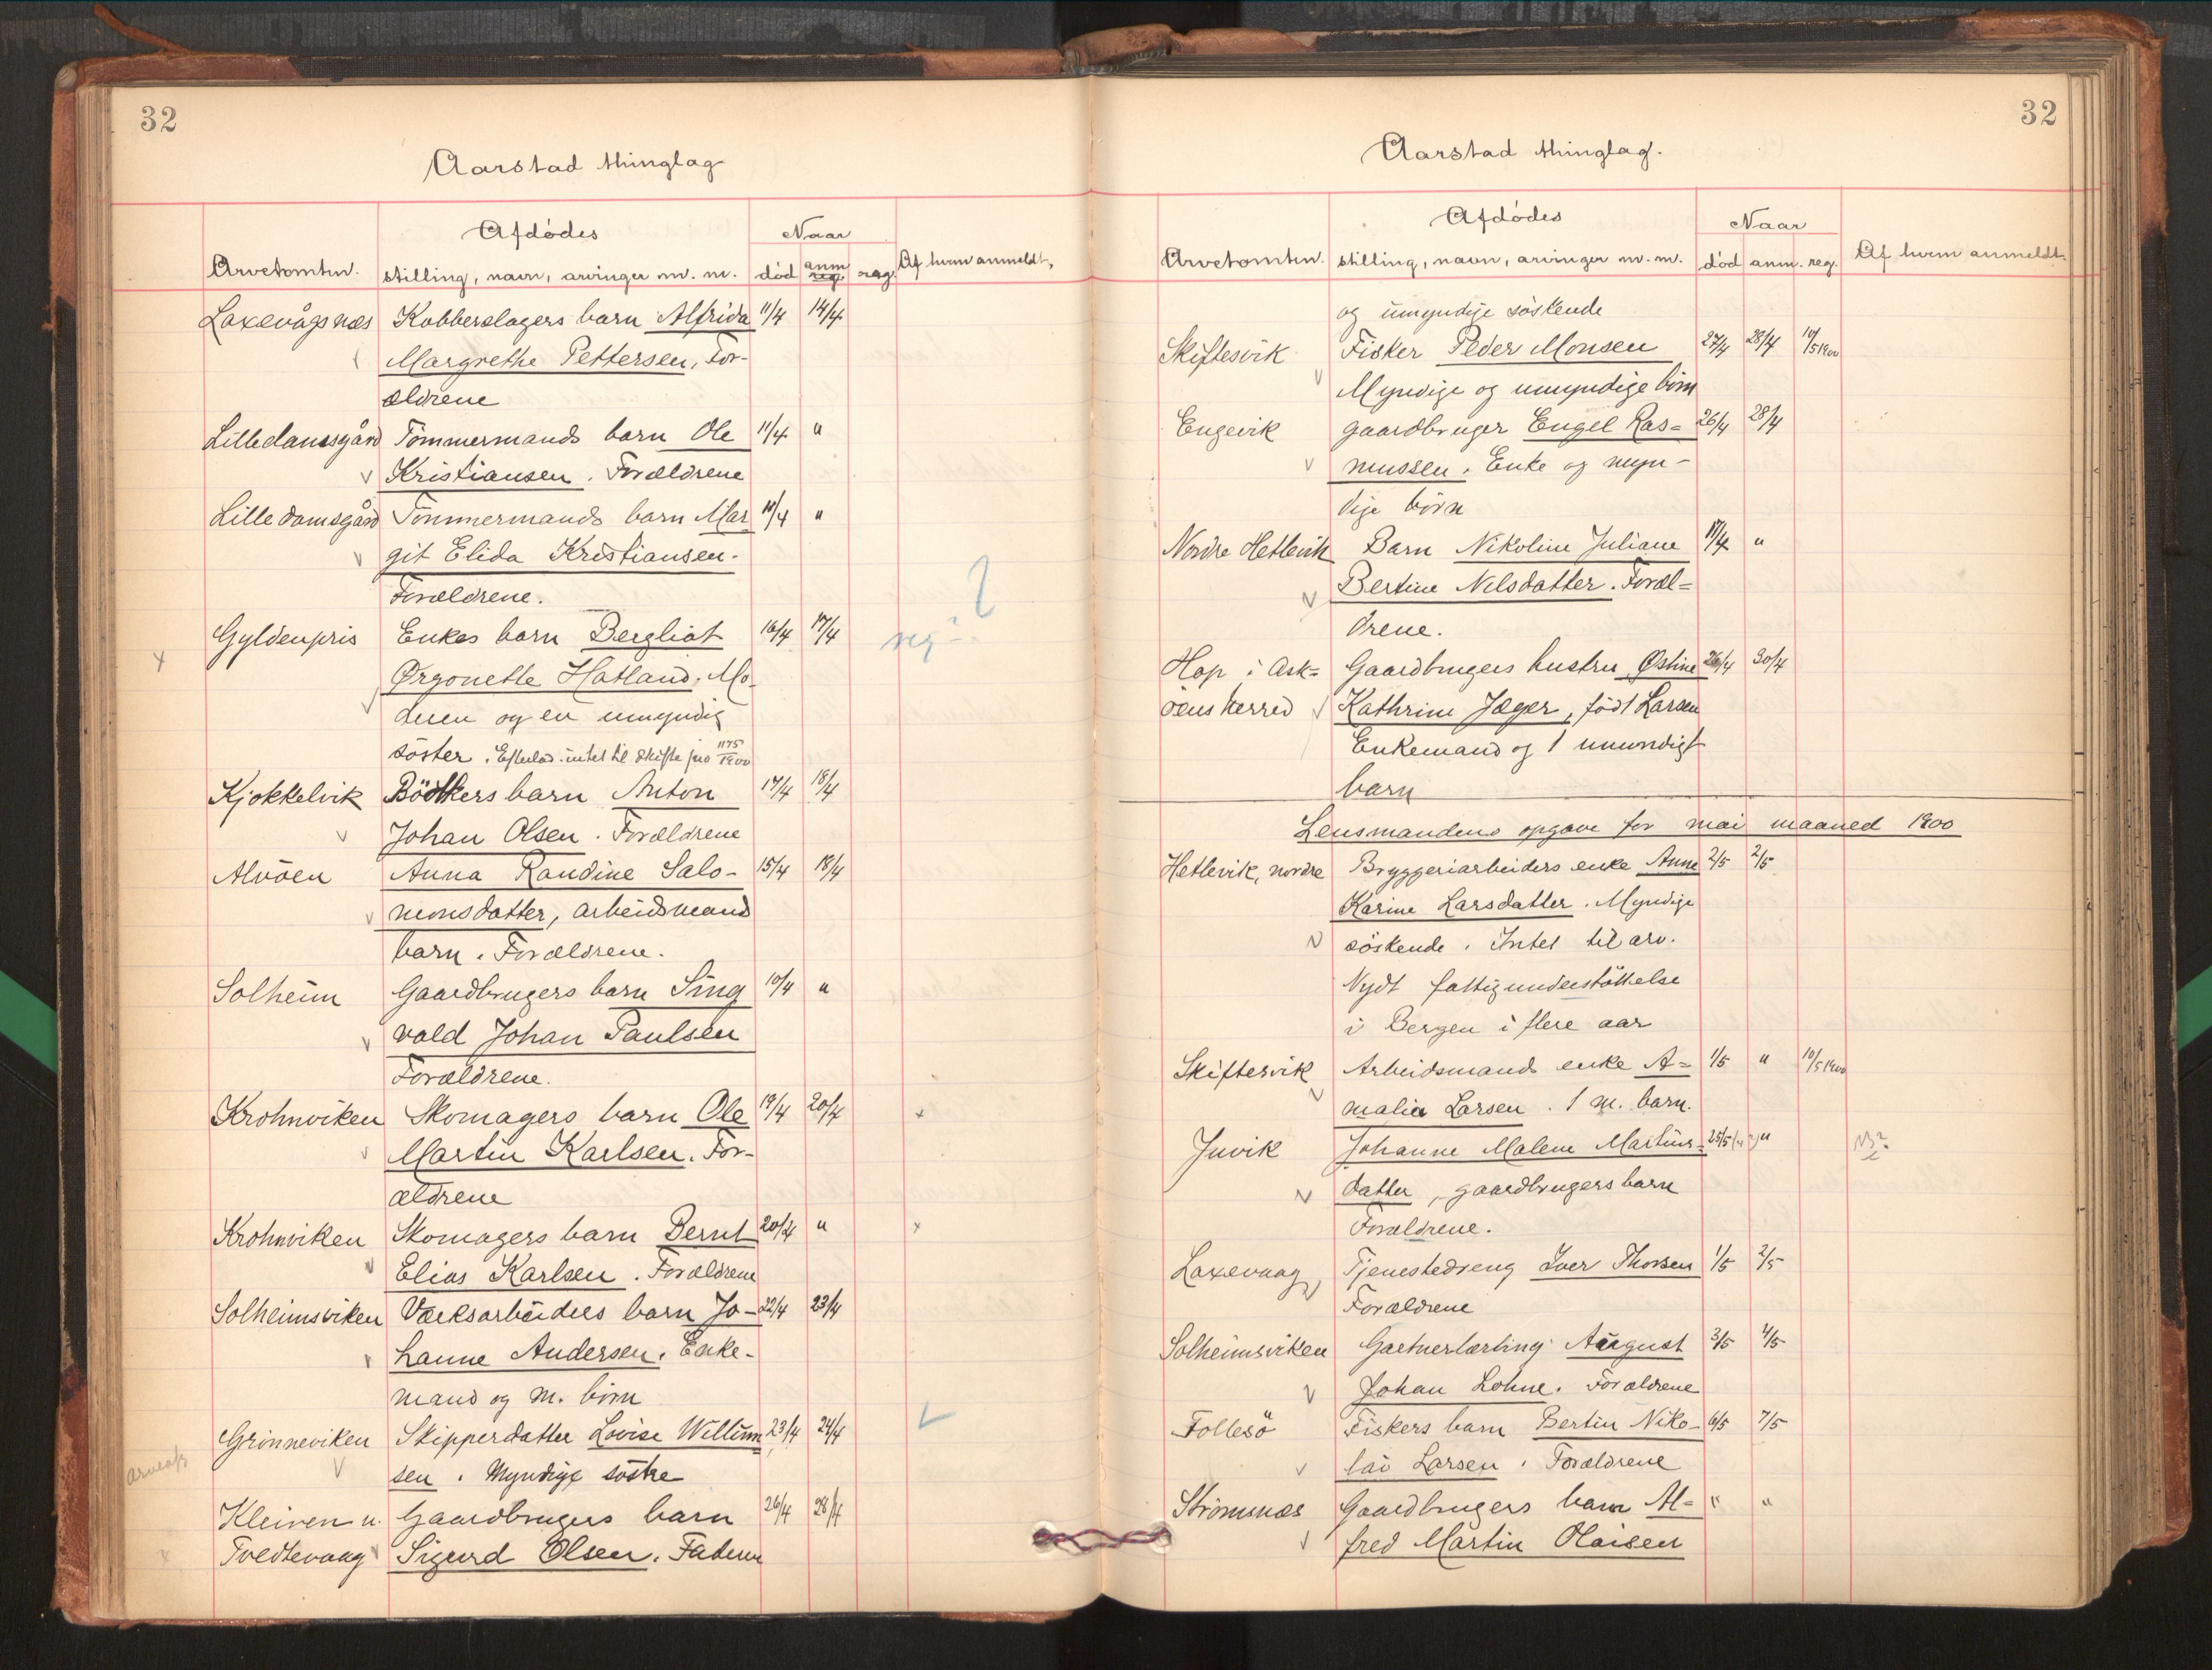 32
Aarstad thinglag
Arvetomten.
Afdödes
stilling, navn, arvinger m. m.
Naar
död anm reg. reg.
Af hvem anmeldt.
Laxevågsnæs Kobberslagers barn Alfrida 11/4 14/4
Margrethe Pettersen, For-
ældrene
Lilledamsgård Tömmermands barn Ole 11/4 "
Kristiansen. Forældrene
Lille damsgård Tömmermands barn Mar 11/4 "
git Elida Kristiansen.
Forældrene.
Gyldenpris Enkes barn Bergliot 16/4 17/4 reg?
Ørgonette Hatland. Mo-
deren og en umyndig
söster. Efterlod intet til skifte jno 1175/1900
Kjokkelvik Bödkers barn Anton 17/4 18/4
Johan Olsen. Forældrene
Alvöen Anna Randine Salo- 15/4 18/4
monsdatter, arbeidsmand
barn. Forældrene.
Solheim Gaardbrugers barn Sing 10/4 "
vald Johan Paulsen
Forældrene.
Krohnviken Skomagers barn Ole 19/4 20/4 x
Martin Karlsen. For-
ældrene
Krohnviken Skomagers barn Bernt 20/4 " x
Elias Karlsen. Forældrene
Solheimsviken Værksarbeiders barn Jo- 22/4 23/4
hanne Andersen. Enke-
mand og m. börn
Grönneviken Skipperdatter Lovise Willum 23/4 24/4
sen. Myndige söstre
Kleiven u. Gaardbrugers barn 26/4 28/4
Tvedtevaag Sigurd Olsen. Faderen
32
Aarstad thinglag.
Arvetomten.
Afdödes
stilling, navn, arvinger m. m.
Naar
död anm. reg.
Af hvem anmeldt.
og umyndige söskende
Skiftesvik Fisker Peder Monsen 27/4 28/4 10/5 1900
Myndige og umyndige börn
Engevik gaardbruger Engel Ras= 26/4 28/4
mussen. Enke og myn-
dige börn
Nordre Hetlevik Barn Nikoline Juliane 17/4 "
Bertine Nilsdatter. Foræl=
drene.
Hop i Ask= Gaardbrugers hustru Østine 26/4 30/4
öens herred Kathrine Jæger, födt Larsen
Enkemand og 1 umyndigt
barn
Lensmandens opgave for mai maaned 1900
Hetlevik, nordre Bryggeriarbeiders enke Anne 2/5 2/5
Karine Larsdatter. Myndige
söskende. Intet til arv.
Nydt fattigunderstöttelse
i Bergen i flere aar
Skiftesvik Arbeidsmands enke A= 1/5 " 10/5 1900
malia Larsen. 1 m. barn.
Juvik Johanne Malene Martins= 25/5 "
datter, gaardbrugers barn
Forældrene.
Laxevaag Tjenestedreng Iver Thorsen 1/5 2/5
Forældrene
Solheimsviken Gartnerlærling August 3/5 4/5
Johan Lohne. Forældrene
Follesö Fiskers barn Bertin Niko- 6/5 7/5
lai Larsen. Forældrene
Strömsnæs Gaardbrugers barn Al= " "
fred Martin Olaisen